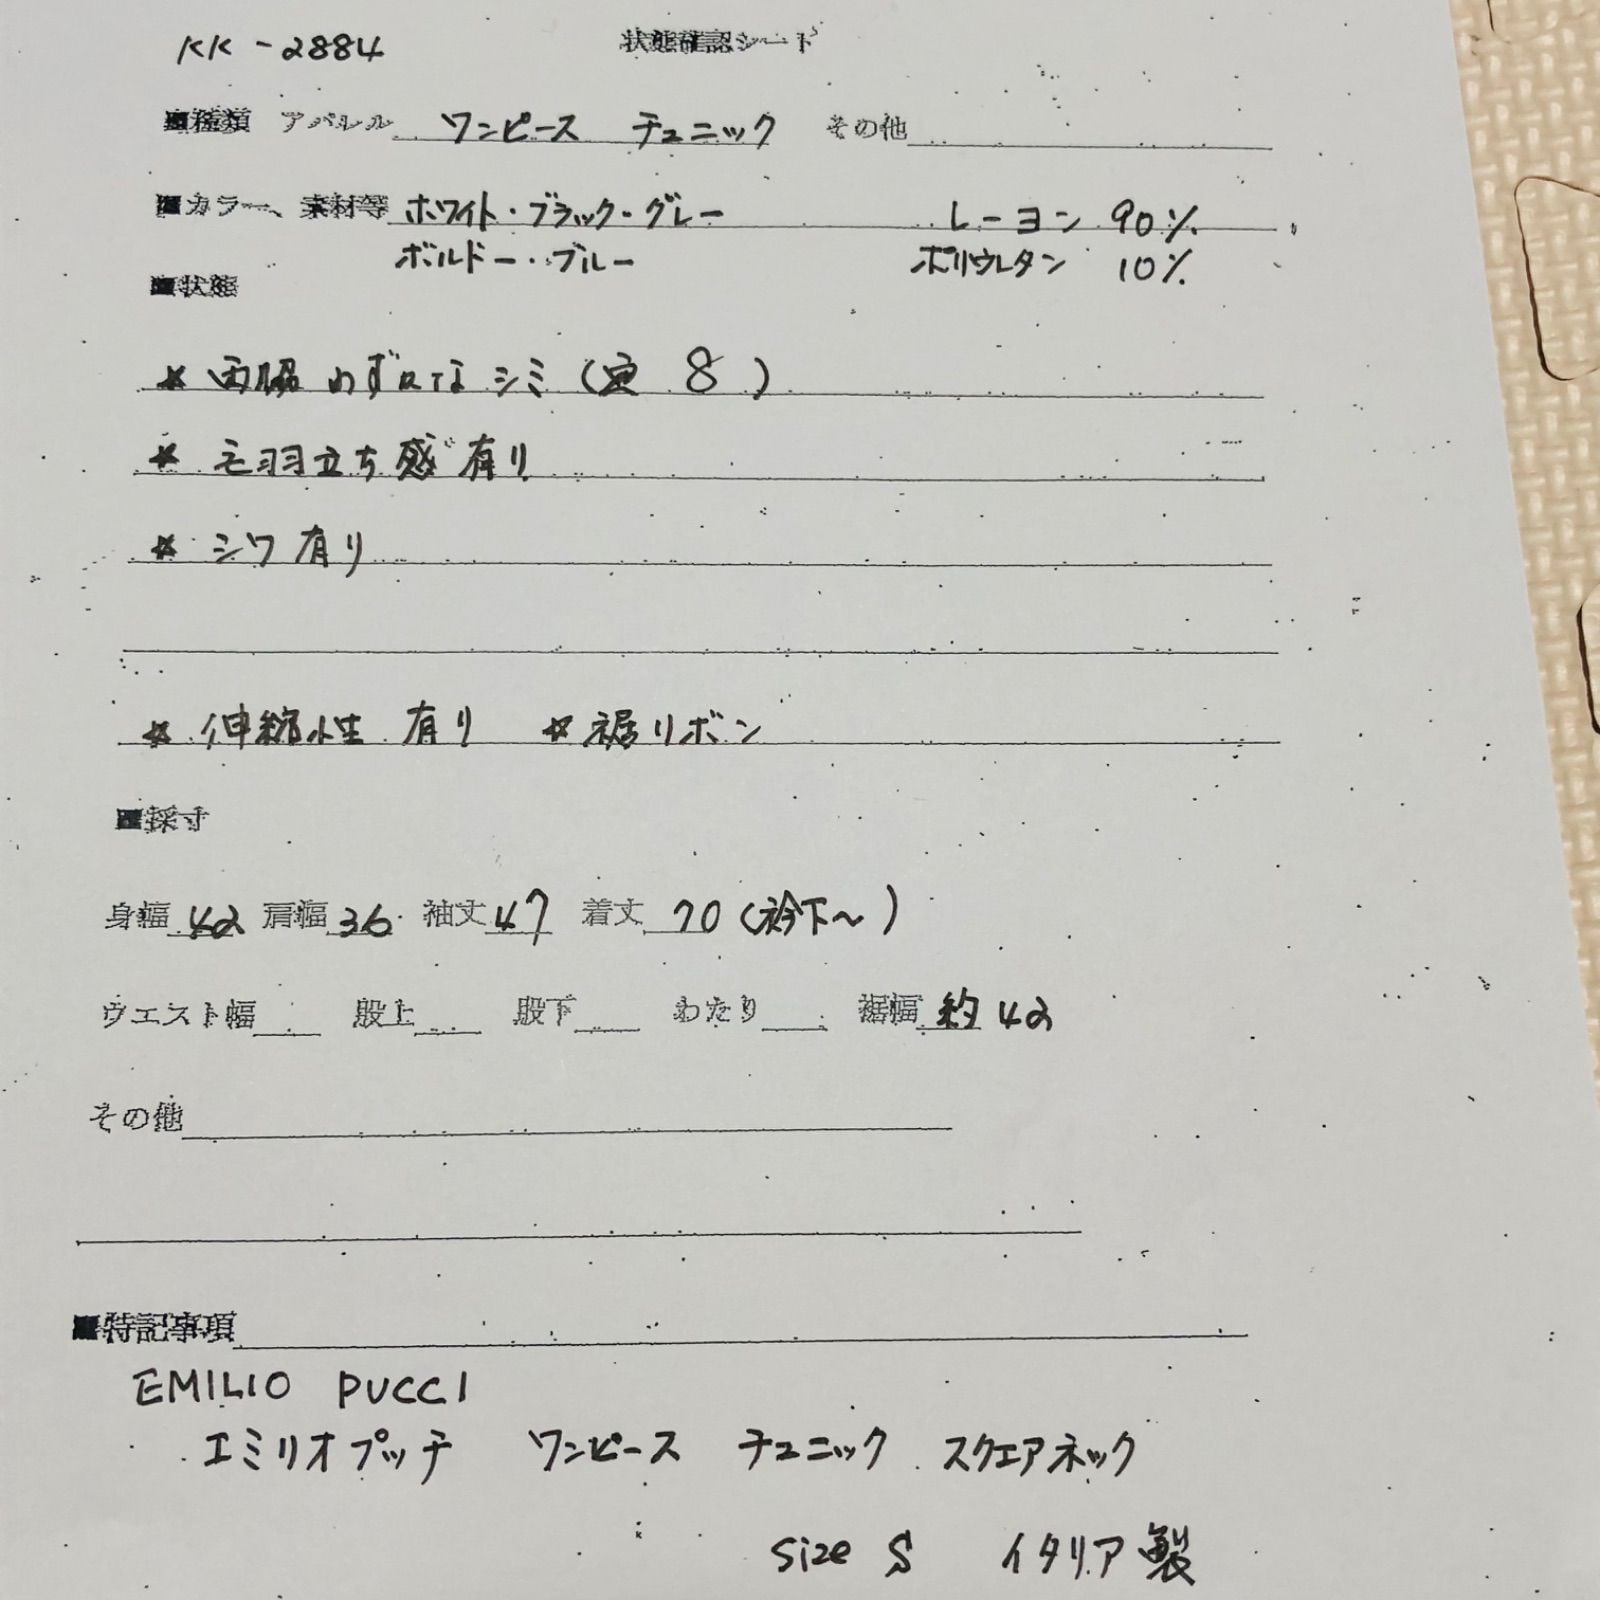 KK-2884 状態確認シート
■種類 アパレル ワンピース チュニック その他
■カラー、素材等 ホワイト・ブラック・グレー レーヨン 90%
ボルドー・ブルー ポリウレタン 10%
■状態
★ 両脇 わずかなシミ(写 8)
★ 毛羽立ち感有り
★ シワ有り
★ 伸縮性有り ★裾リボン
■採寸
身幅 42 肩幅 36 袖丈 47 着丈 70(衿下~)
ウエスト幅 股上 股下 わたり 裾幅 約42
その他
■特記事項
EMILIO PUCCI
エミリオプッチ ワンピース チュニック スクエアネック
size S イタリア製